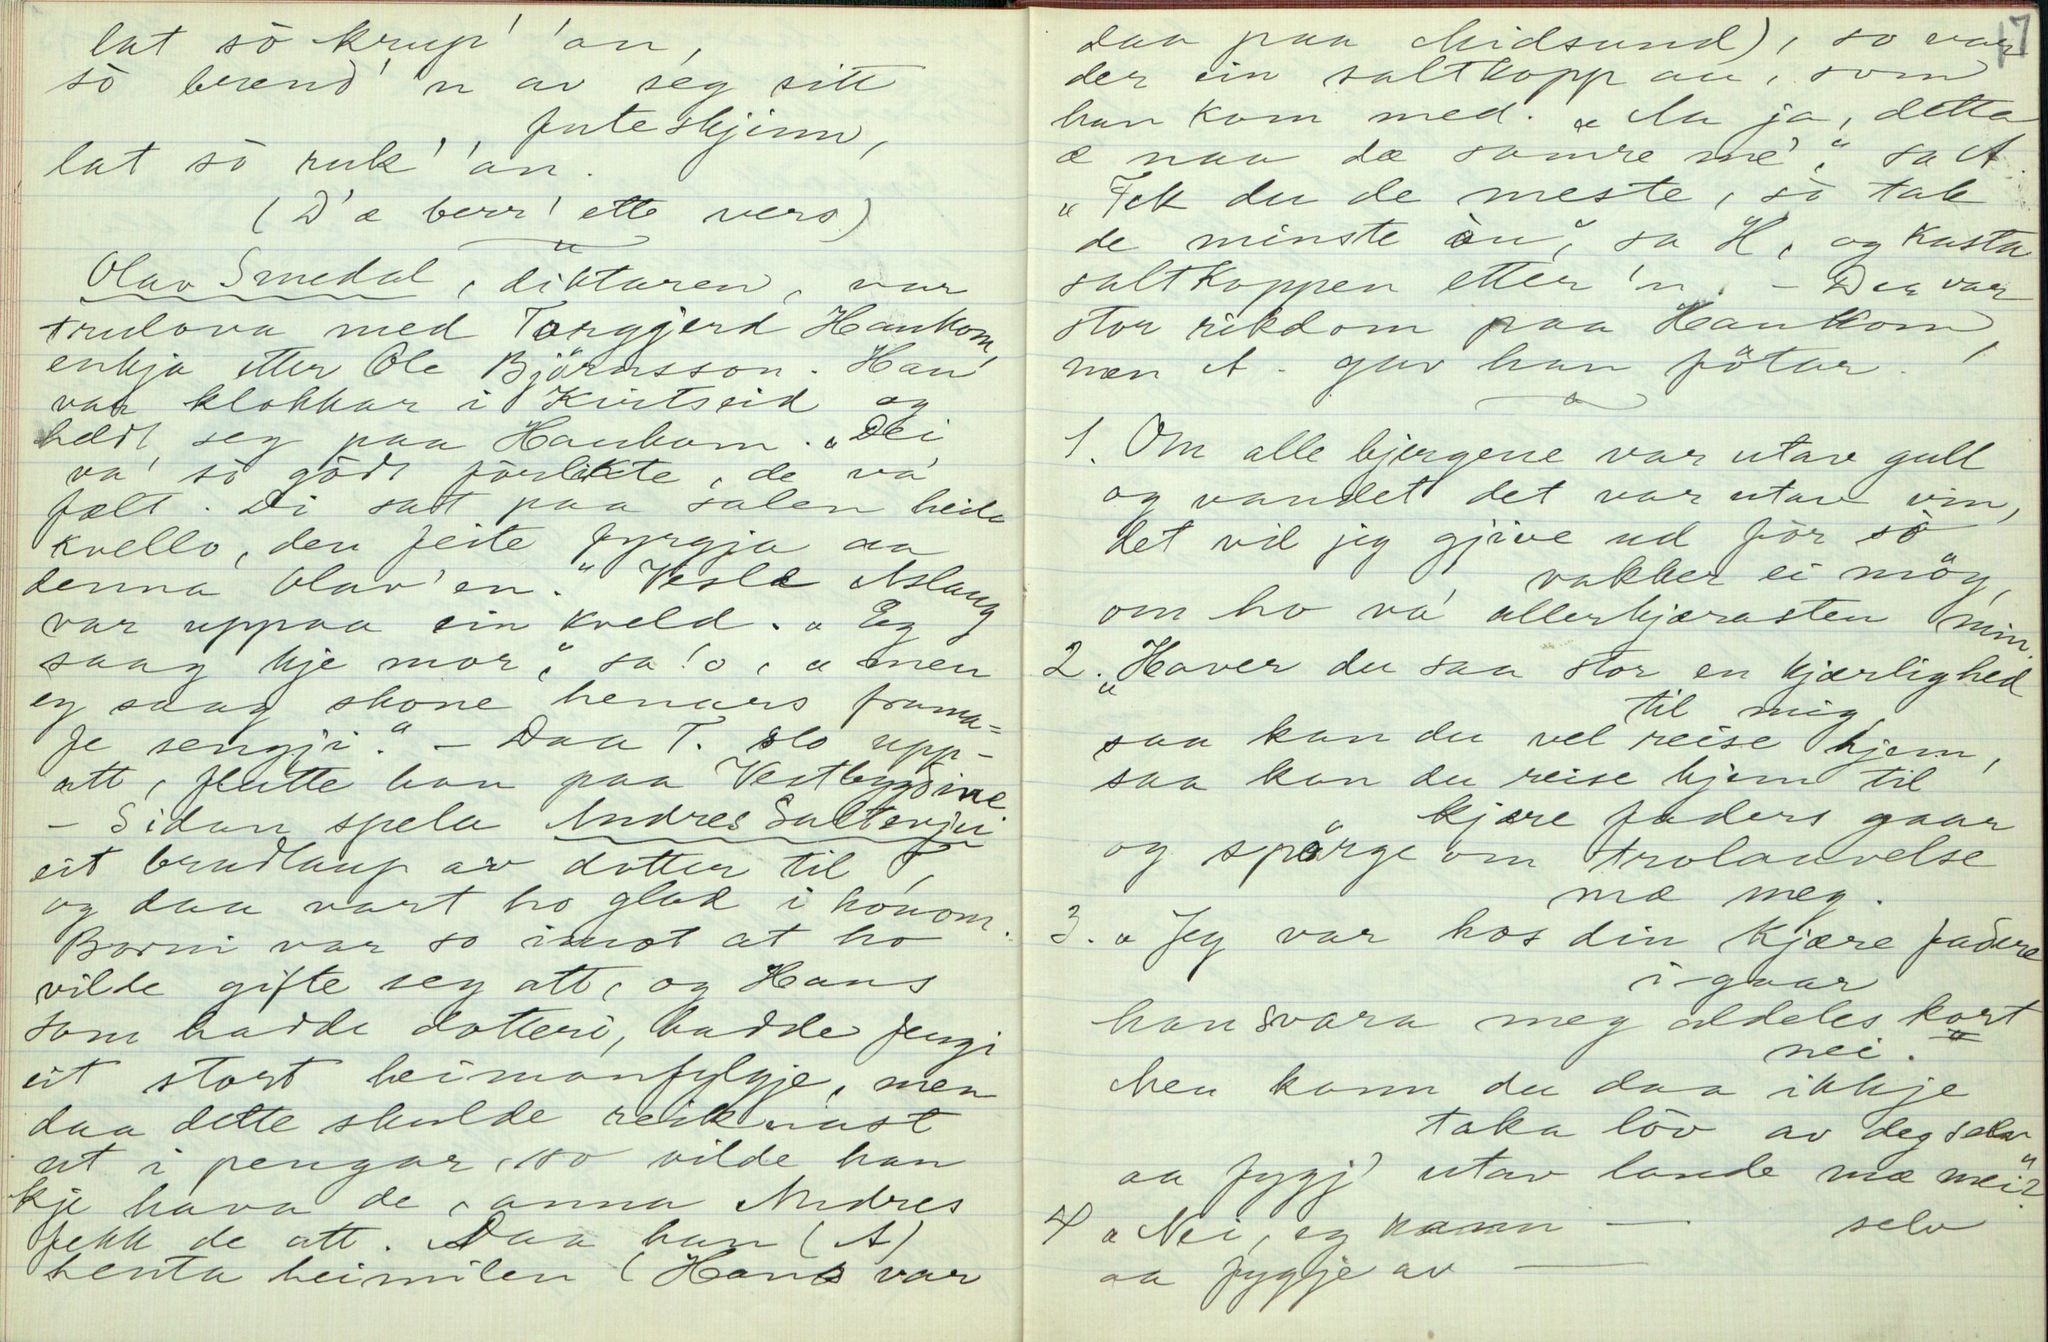 lat sò krup' 'an,
sò brend 'n av seg sitt
futeskjinn,
lat sò ruk' 'an.
(D'æ berr' ette vers)
Olav Smedal, diktaren, var
trulova med Torgjerd Haukom,
enkja etter Ole Björnsson. Han
var klokkar i Kvitseid og
heldt seg paa Haukom. „Dei
va' sò gödt förlikte, de va'
fælt. Di sat paa salen heile
kvello, den feite fyrgja aa
denna Olav'en." Vesle Aslaug
var uppaa ein kveld. „Eg
saag kje mor", sa 'o, „men
eg saag skone hennars frama-
fe sengji." – Daa T. slo upp-
att, flutte han paa Vestbygdine
– Sidan spela Andres Saltevju
eit brudlaup av dotter til T,
og daa vart ho glad i honom.
Borni var so imot at ho
vilde gifte seg att, og Hans
som hadde dotteri, hadde fengi
eit stort heimanfylgje, men
daa dette skulde reiknast
ut i pengar, so vilde han
kje hava de, anna Andres
fekk de att. Daa han (A)
henta heimilen (Hans var
17
daa paa Midsund), so var
der ein saltkopp au, som
han kom med. „Aa ja, detta
æ naa dæ somre mé", sa A.
„Fek du de meste, sò tak
de minste òu", sa H, og kasta
saltkoppen etter 'n. – Der var
stor rikdom paa Haukom,
men A. gav han fötar.
1. Om alle bjergene var utav gull
og vandet det var utav vin,
det vil jeg gjive ud för sò
vakker ei möy,
om ho va' allerkjærasten min.
2. „Haver du saa stor en kjærlighed
til mig,
saa kan du vel reise hjem,
saa kan du reise hjem til
kjære faders gaar
og spörge om trolauvelse
mæ meg.
3. „Jeg var hos din kjære fadere
i gaar
han svara meg aldeles kort
nei."
Men kann du daa ikkje
taka löv av deg selv
aa fygj' utav lande mæ mei?"
4 „Nei, eg kann — selv
aa fygje av —